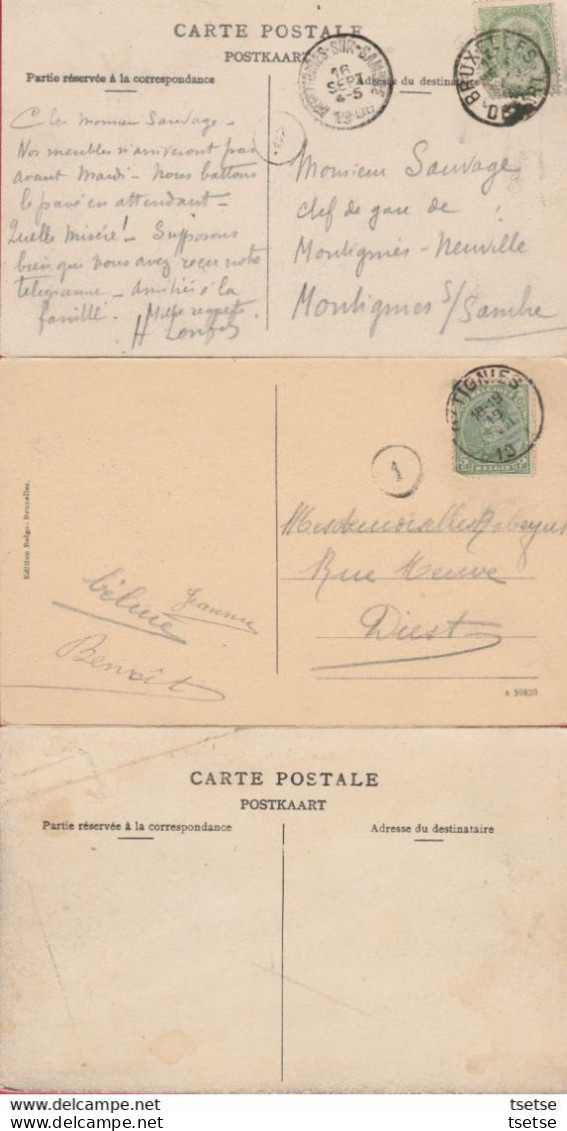 CARTE POSTALE
POSTKAART
Partie réservée à la correspondance
Adresse du destinataire
MONTIGNIES-SUR-SAMBRE
16
SEPT
4-5
BRUXELLES
DEPART
Cher Monsieur Sauvage -
Nos meubles n'arriveront pas
avant Mardi - Nous battons
le pavé en attendant -
Quelle misère! - Supposons
bien que vous avez reçu notre
télégramme - Amitiés à la
famille. Mille respects
H
Monsieur Sauvage
chef de gare de
Montignies-Neuville
Montignies s/Sambre
TIGNIES
18-19
19
19
1
Edition Belge - Bruxelles.
Mesdemoiselles
Rue Neuve
Diest
Jeanne
Céline
Benoît
CARTE POSTALE
POSTKAART
Partie réservée à la correspondance
Adresse du destinataire
tsetse tsetse
tsetse tsetse
www.delcampe.net